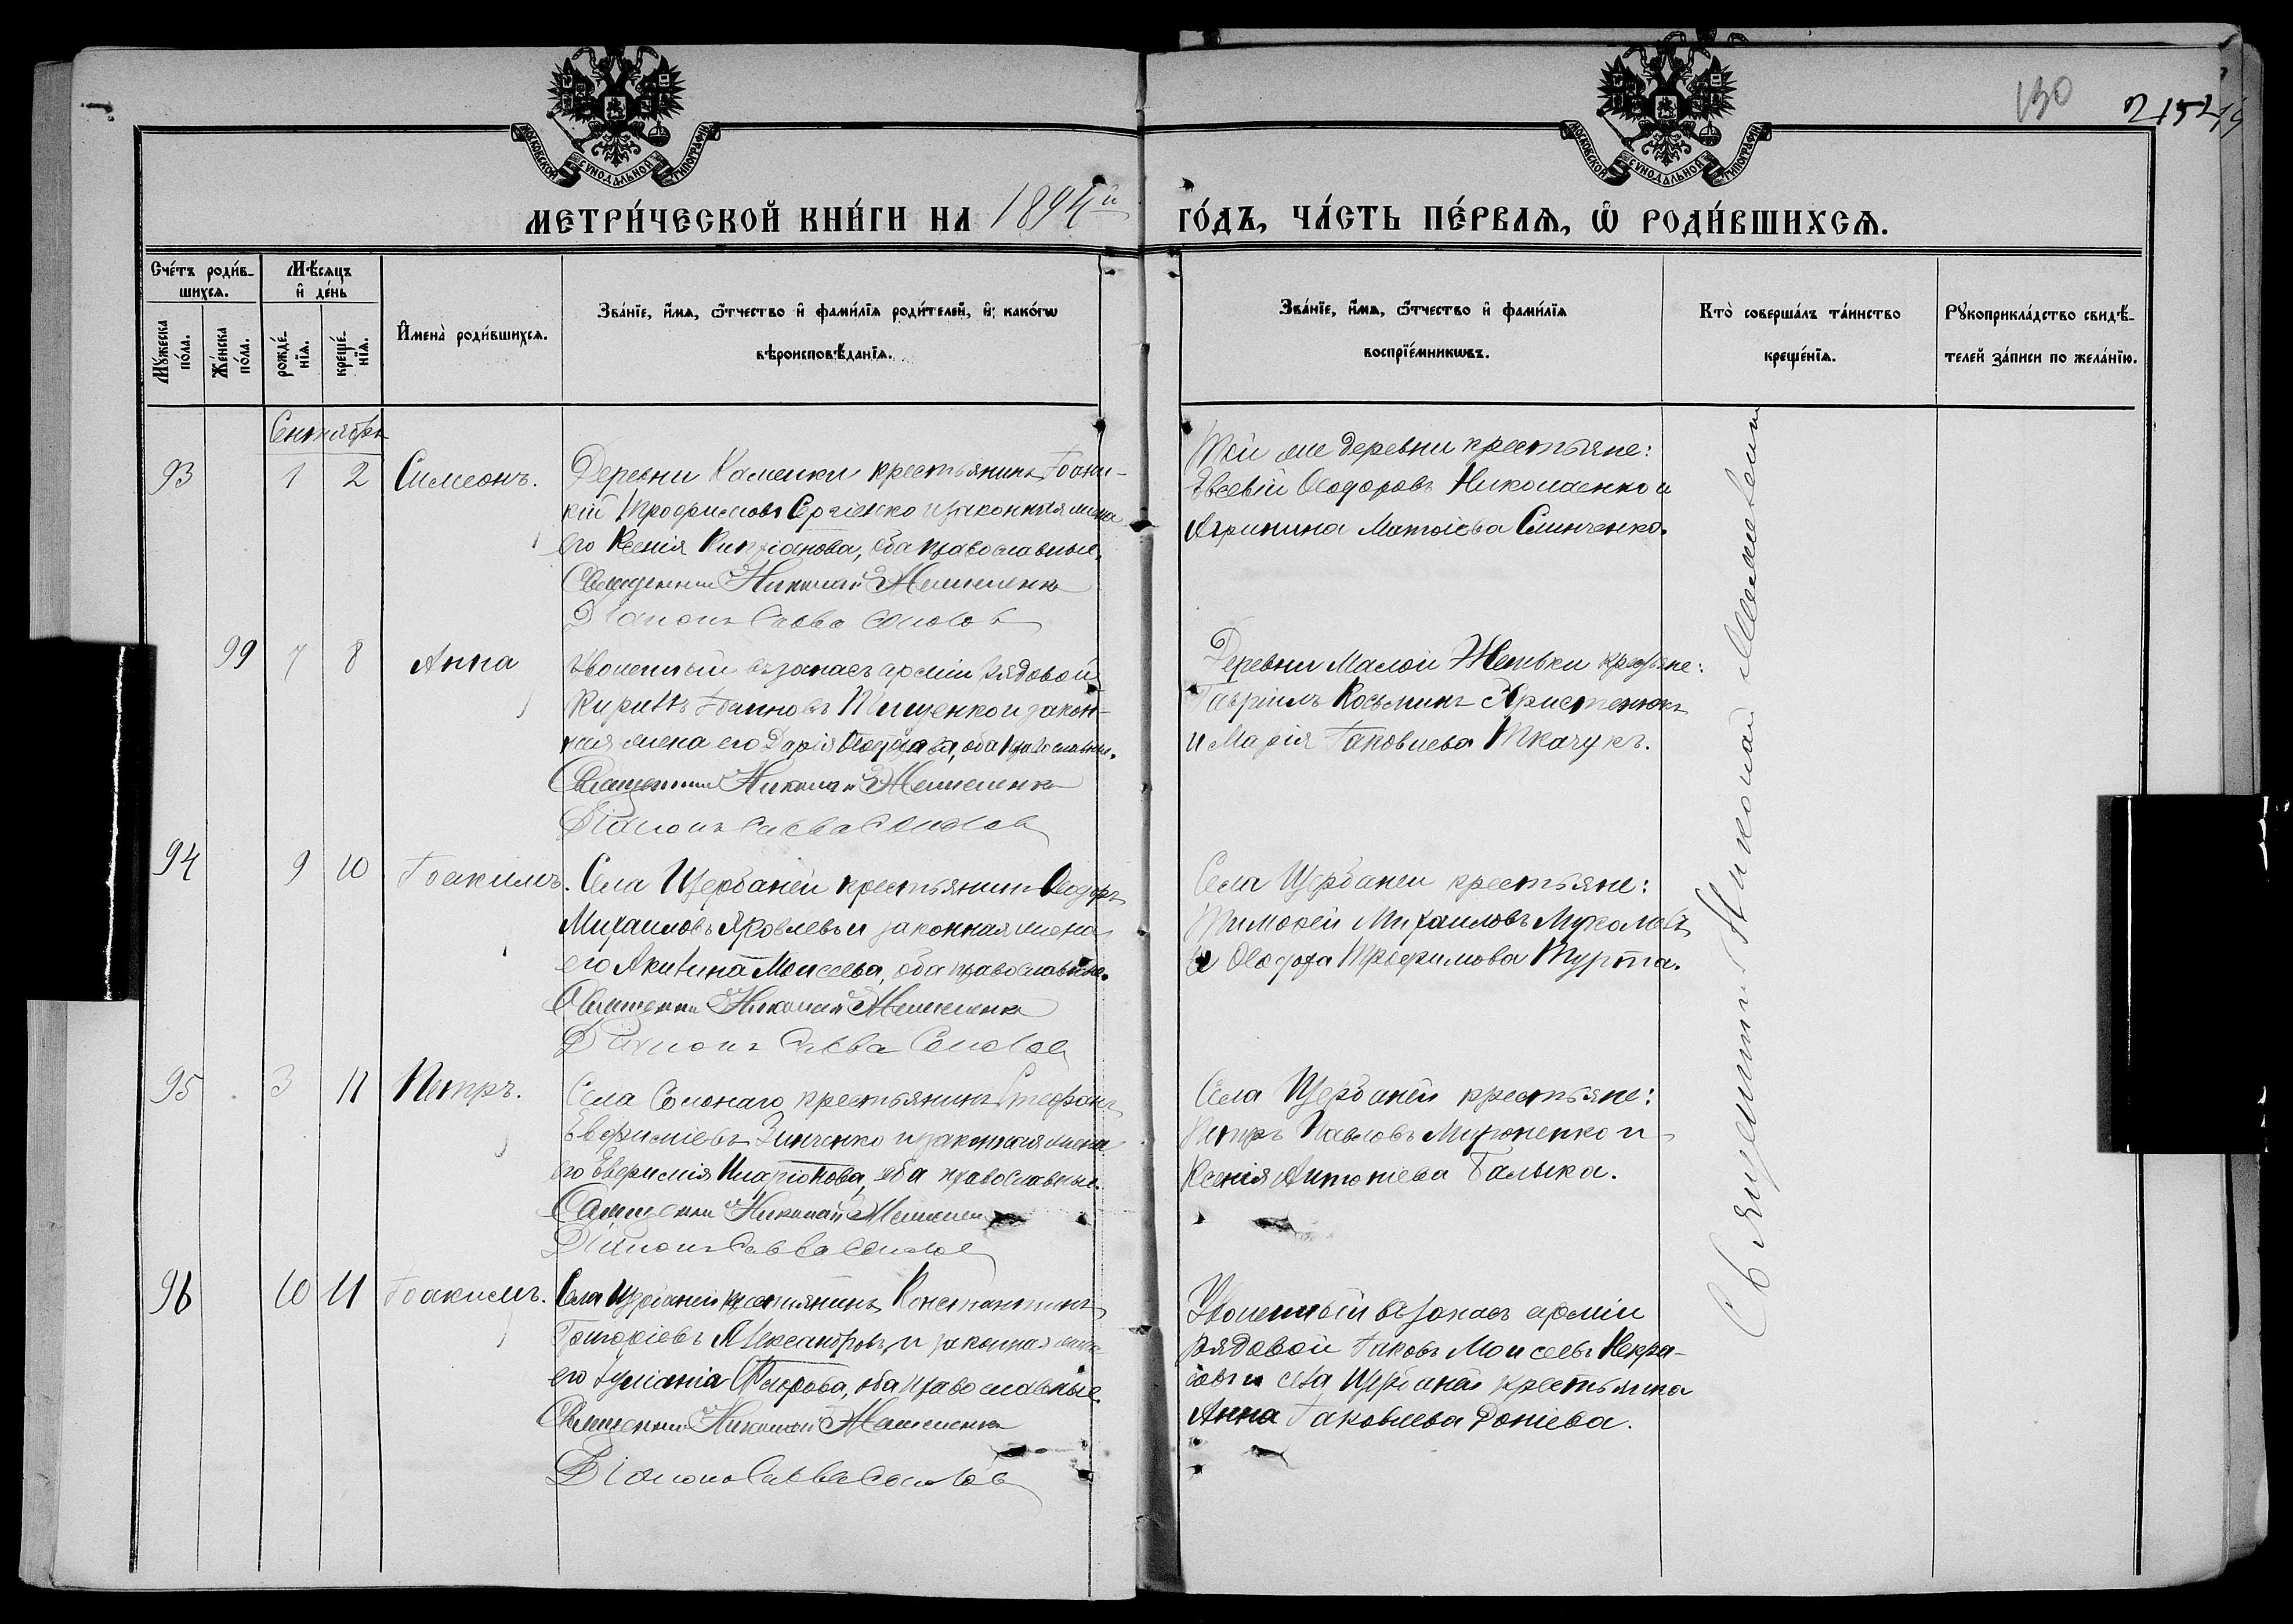 130
МОСКОВСКОЙ СѴНОДАЛЬНОЙ ТИПОГРАФІИ
МОСКОВСКОЙ СѴНОДАЛЬНОЙ ТИПОГРАФІИ
МЕТРИ́ЧЕСКОЙ КНИ́ГИ НА 1894й ГО́ДЪ, ЧА́СТЬ ПЕ́РВАѦ, Ѽ РОДИ́ВШИХСѦ.
Сче́тъ роди́в-
шихсѧ.
Мѣ́сѧцъ
и҆ де́нь
Мꙋ́жеска
по́ла.
Же́нска
по́ла.
рожде́-
нїѧ.
креще́-
нїѧ.
И҆мена̀ роди́вшихсѧ.
Зва́нїе, и҆́мѧ, ѻ҆́тчество и҆ фами́лїѧ роди́телей, и҆ како́гѡ
вѣроисповѣ́данїѧ.
Зва́нїе, и҆́мѧ, ѻ҆́тчество и҆ фами́лїѧ
воспрїе́мникѡвъ.
Кто̀ соверша́лъ та́инство
креще́нїѧ.
Рꙋкоприкла́дство свидѣ́-
телей за́писи по жела́нїю.
Сентябрь
93 1 2 Симеонъ. Деревни Каменки крестьянинъ Іоанн-
кій Трофимовъ Сергіенко и законная жена
его Ксенія Кипріанова, оба православные.
Священникъ Николай
Діаконъ Савва Соколов
Той же деревни крестьяне:
Евсевій Ѳеодоровъ Николаенко и
Акрипина Матѳіева Слинченко.
99 7 8 Анна Уволенный въ запасъ арміи рядовой
Кириллъ Іоанновъ Тищенко и закон-
ная жена его Дарія Ѳеодорова, оба православные.
Священникъ Николай
Діаконъ Савва Соколов
Деревни Малой крестьяне:
Гавріилъ Косьминъ Христенюкъ
и Марія Іаковлева Ткачукъ.
94 9 10 Іоакимъ. Села Щербаней крестьянинъ Ѳеодоръ
Михаиловъ Яковлевъ и законная жена
его Акилина Моисеева, оба православные.
Священникъ Николай
Діаконъ Савва Соколов
Села Щербаней крестьяне:
Тимоѳей Михаиловъ
и Ѳеодора Трофимова Турта.
95 3 11 Петръ. Села Солонаго крестьянинъ Стефанъ
Евфиміевъ Зинченко и законная жена
его Евфимія Иларіонова, оба православные.
Священникъ Николай
Діаконъ Савва Соколов
Села Щербаней крестьяне:
Петръ Павловъ Мироненко и
Ксенія Антоніева Балыка.
96 10 11 Іоакимъ. Села Щербаней крестьянинъ Константинъ
Григоріевъ Александровъ и законная жена
его Іуліанія, оба православные
Священникъ Николай
Діаконъ Савва Соколов
Уволенный въ запасъ арміи
рядовой Іаковъ Моисеевъ Некра-
совъ и села Щербаней крестьянка
Анна Іаковлева Доніева.
Священникъ Николай